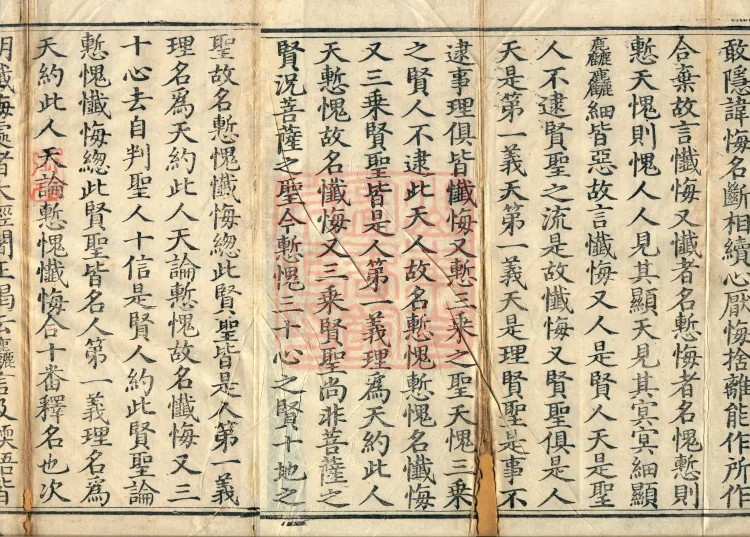 敢隱諱悔名斷相續心厭悔捨離能作所作
合棄故言懺悔又懺者名慙悔者名愧慙則
慙天愧則愧人人見其顯天見其冥冥細顯
麤麤細皆惡故言懺悔又人是賢人天是聖
人不逮賢聖之流是故懺悔又賢聖俱是人
天是第一義天第一義天是理賢聖是事不
逮事理俱皆懺悔又慙三乘之聖天愧三乘
之賢人不逮此天人故名慙愧慙愧名懺悔
又三乘賢聖皆是人第一義理為天約此人
天慙愧故名懺悔又三乘賢聖尚非菩薩之
賢況菩薩之聖今慙愧三十心之賢十地之
聖故名慙愧懺悔總此賢聖皆是人第一義
理名爲天約此人天論慙愧故名懺悔又三
十心去自判聖人十信是賢人約此賢聖論
慙愧懺悔總此賢聖皆名人第一義理名爲
天約此人天論慙愧懺悔合十番釋名也次
明懺悔處者大經闍王偈云麤言及軟語皆